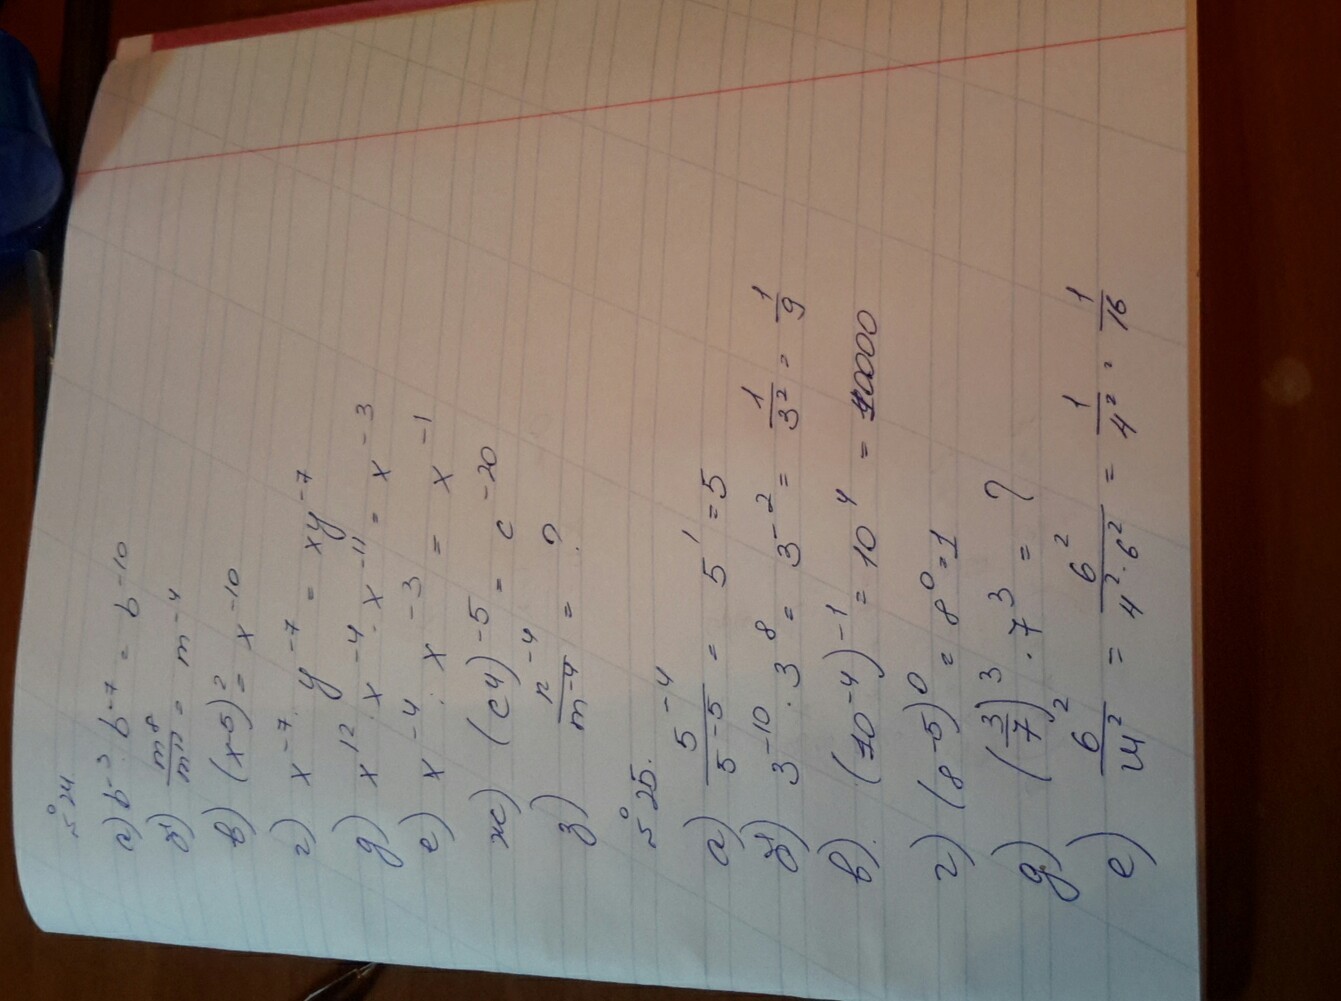 № 24
а) b⁻³ · b⁻⁷ = b⁻¹⁰
б) m⁸/m¹¹ = m⁻⁴
в) (x⁻⁵)² = x⁻¹⁰
г) x⁻⁷ · y⁻⁷ = xy⁻⁷
д) x¹² · x⁻⁴ · x⁻¹¹ = x⁻³
е) x⁻⁴ : x⁻³ = x⁻¹
ж) (c4)⁻⁵ = c⁻²⁰
з) n⁻⁴/m⁻⁴ = ?
№ 25.
а) 5⁻⁴/5⁻⁵ = 5¹ = 5
б) 3⁻¹⁰ · 3⁸ = 3⁻² = 1/3² = 1/9
в) (10⁻⁴)⁻¹ = 10⁴ = 10000
г) (8⁻⁵)⁰ = 8⁰ = 1
д) (3/7)³ · 7³ = ?
е) 6²/24² = 6²/4² · 6² = 1/4² = 1/16